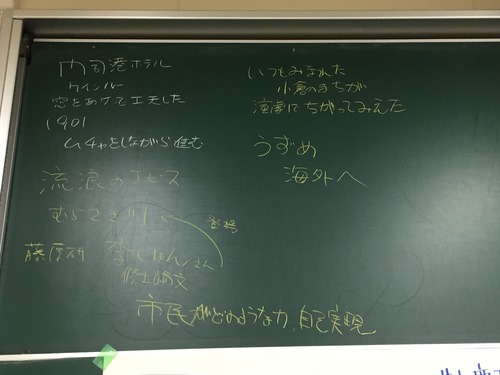 門司港ホテル
ツインルーム
窓をあけて工夫した
1901
ムチャをしながら進む
流浪の
むらさき川
登場
藤原研 さん
修士論文
市民がどのような力、自己実現
いつもみなれた
小倉のまちが
演劇にちがってみえた
うずめ
海外へ